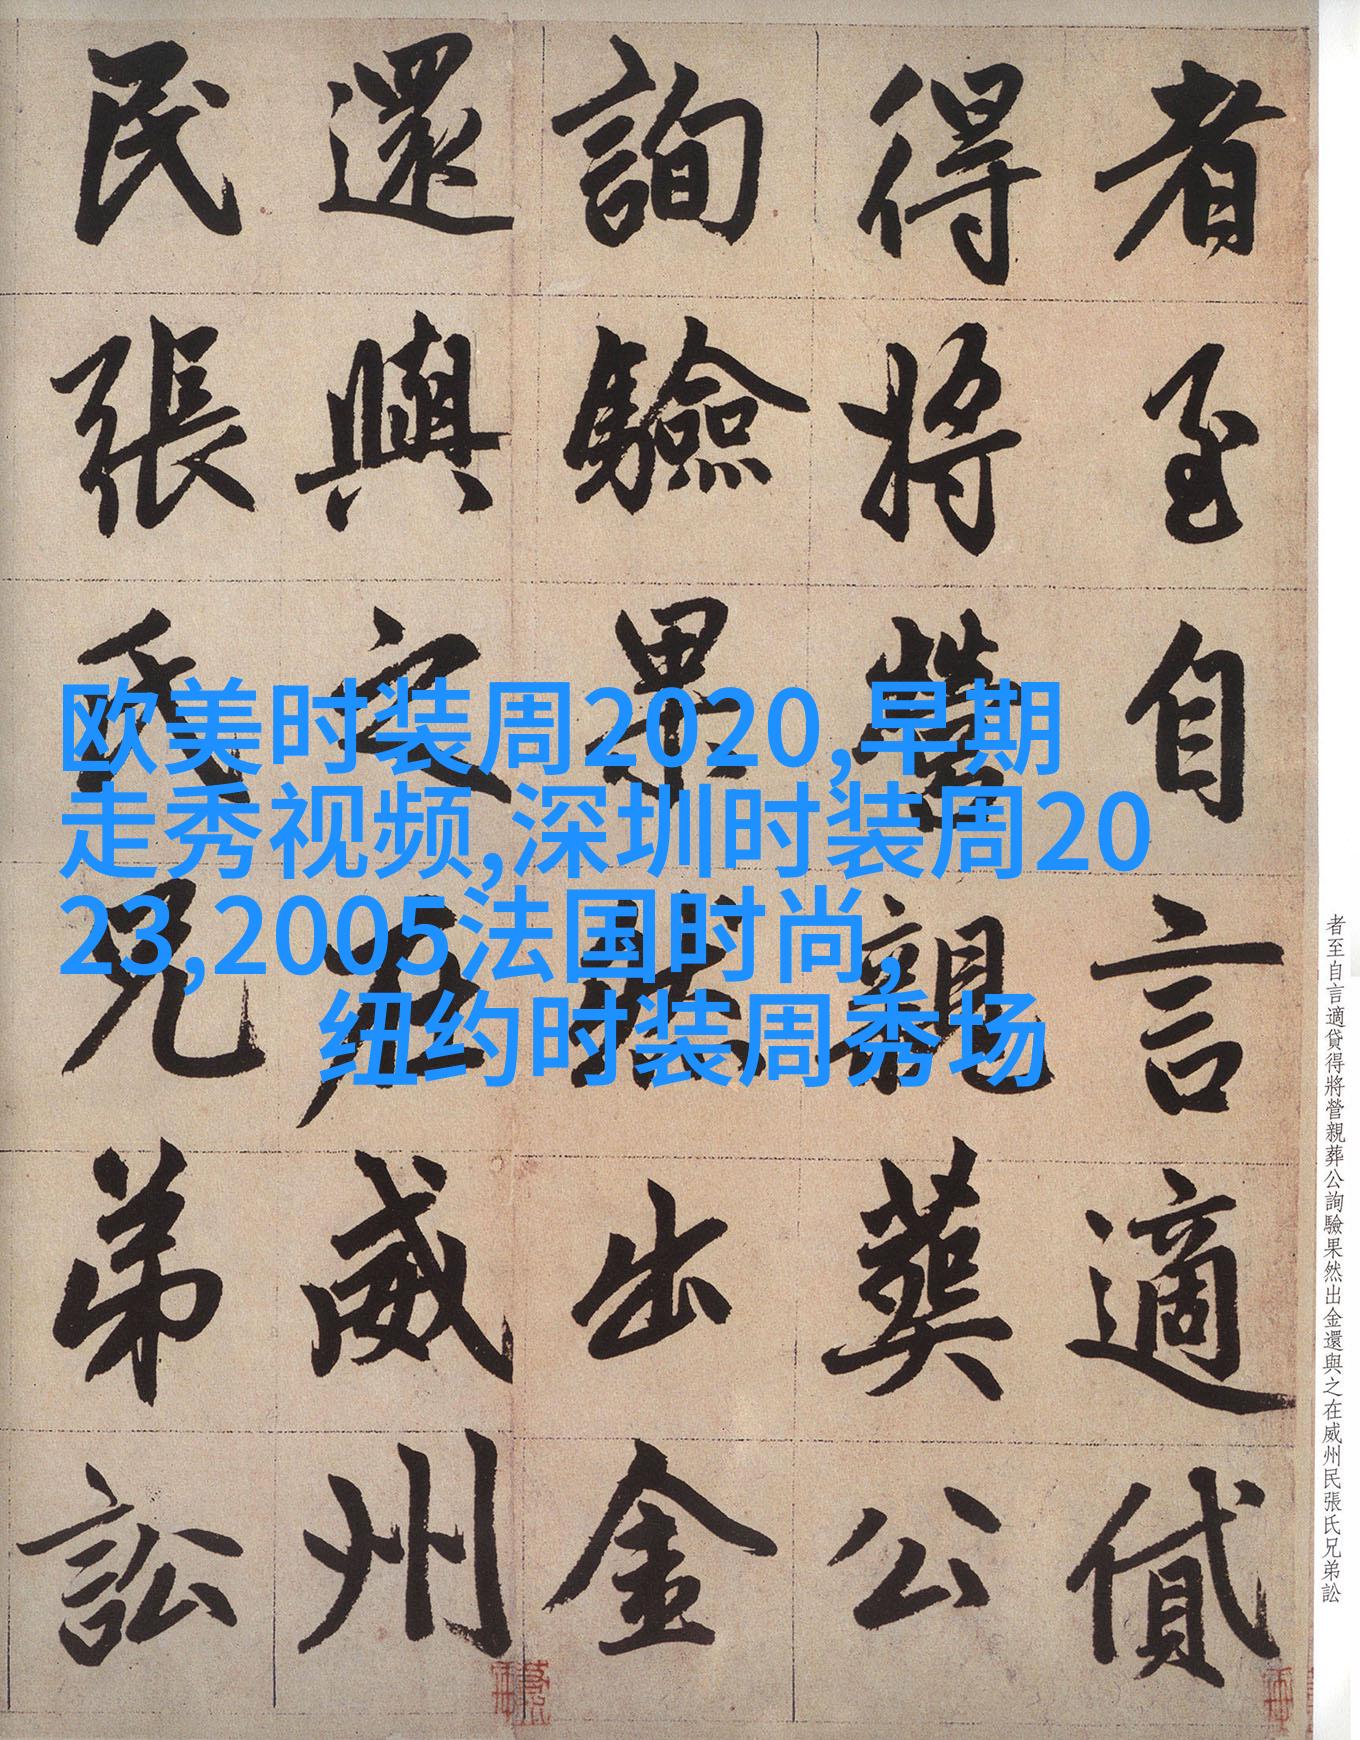 者至自言適貸
得將營親葬公
詢驗果然出金
還與之在威州
民張氏兄弟訟
欧美时装周2020,早期
走秀视频,深圳时装周20
23,2005法国时尚,
纽约时装周秀场
者至自言適貸得將營親葬公詢驗果然出金還與之在威州民張氏兄弟訟